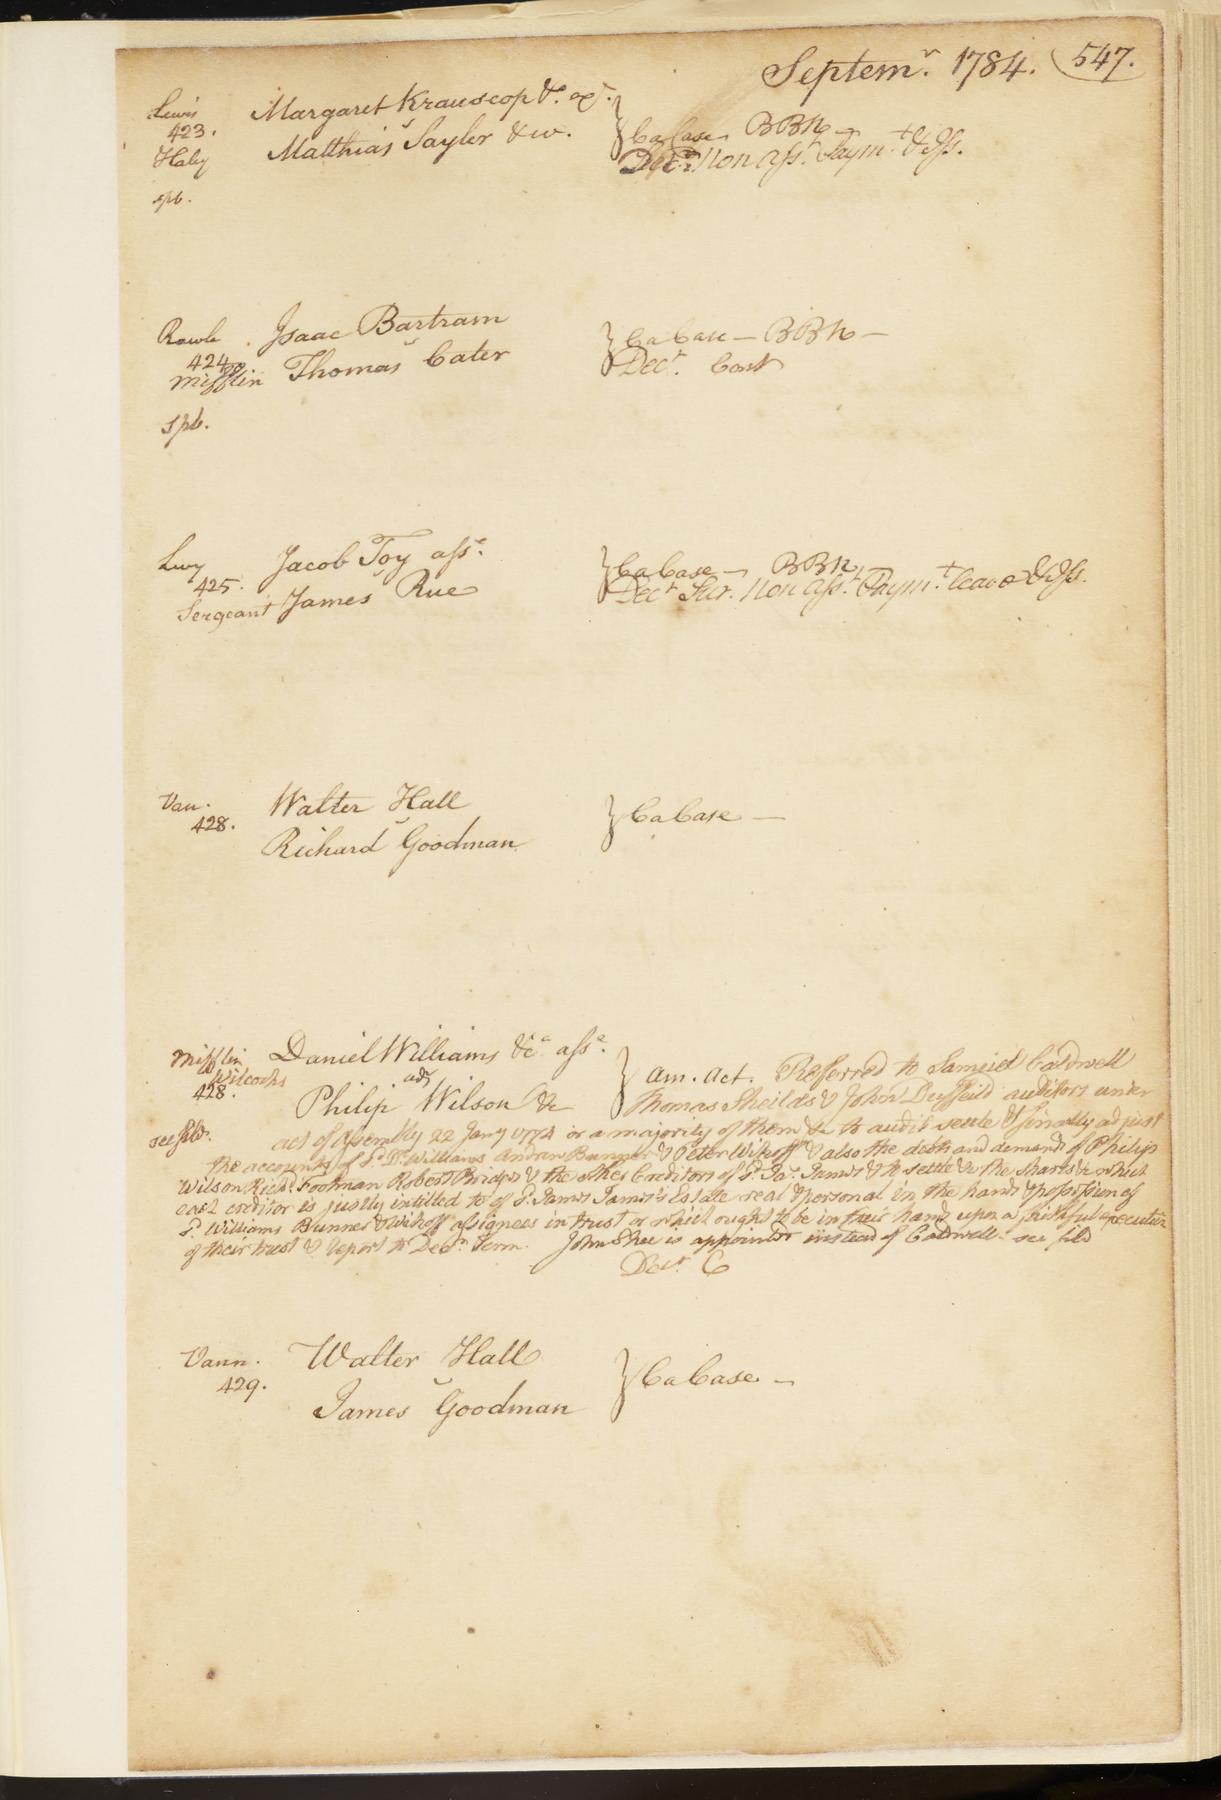 Septemr. 1784. 547.
Lewis Margaret Krauscop &c. exr.
423. v
Haly Matthias Sayler & w.
Ca Case BBh —
Decn. Non Asst. Paymt. & Iss.
spb.
Rawle Isaac Bartram
424 v
Mifflin Thomas Cater
Ca Case — BBh —
Decr. Cont
spb.
Levy Jacob Toy asse.
425. v
Sergeant James Rue
Ca Case — BBh
Decr Nar. Non Asst. Paymt. leave & Iss.
Van. Walter Hall
428. v
Richard Goodman
Ca Case —
Mifflin Daniel Williams &ca asse.
Wilcocks ads
428. Philip Wilson &c
am. act. Referred to Samuel Caldwell
Thomas Sheilds & John Duffeild auditors under
see fild. act of Assembly 22 Jany 1774 or a majority of them &c to audit settle & finally adjust
the accounts of sd. Dl. Williams Andrew Bunner & Peter Wikoff & also the debts and demands of Philip
Wilson Richd. Footman Robert Bridges & the other Creditors of sd. Jas. James & to settle &c the shares &c which
each creditor is justly intitled to of sd. James James's Estate real & personal in the hands & possession of
sd. Williams Bunner & Wikoff assignees in trust or which ought to be in their hands upon a faithful execution
of their trust & report to Decr. Term. John Shee is appointed instead of Caldwell. see fild
Decr. C
Vann. Walter Hall
429. v
James Goodman
Ca Case —